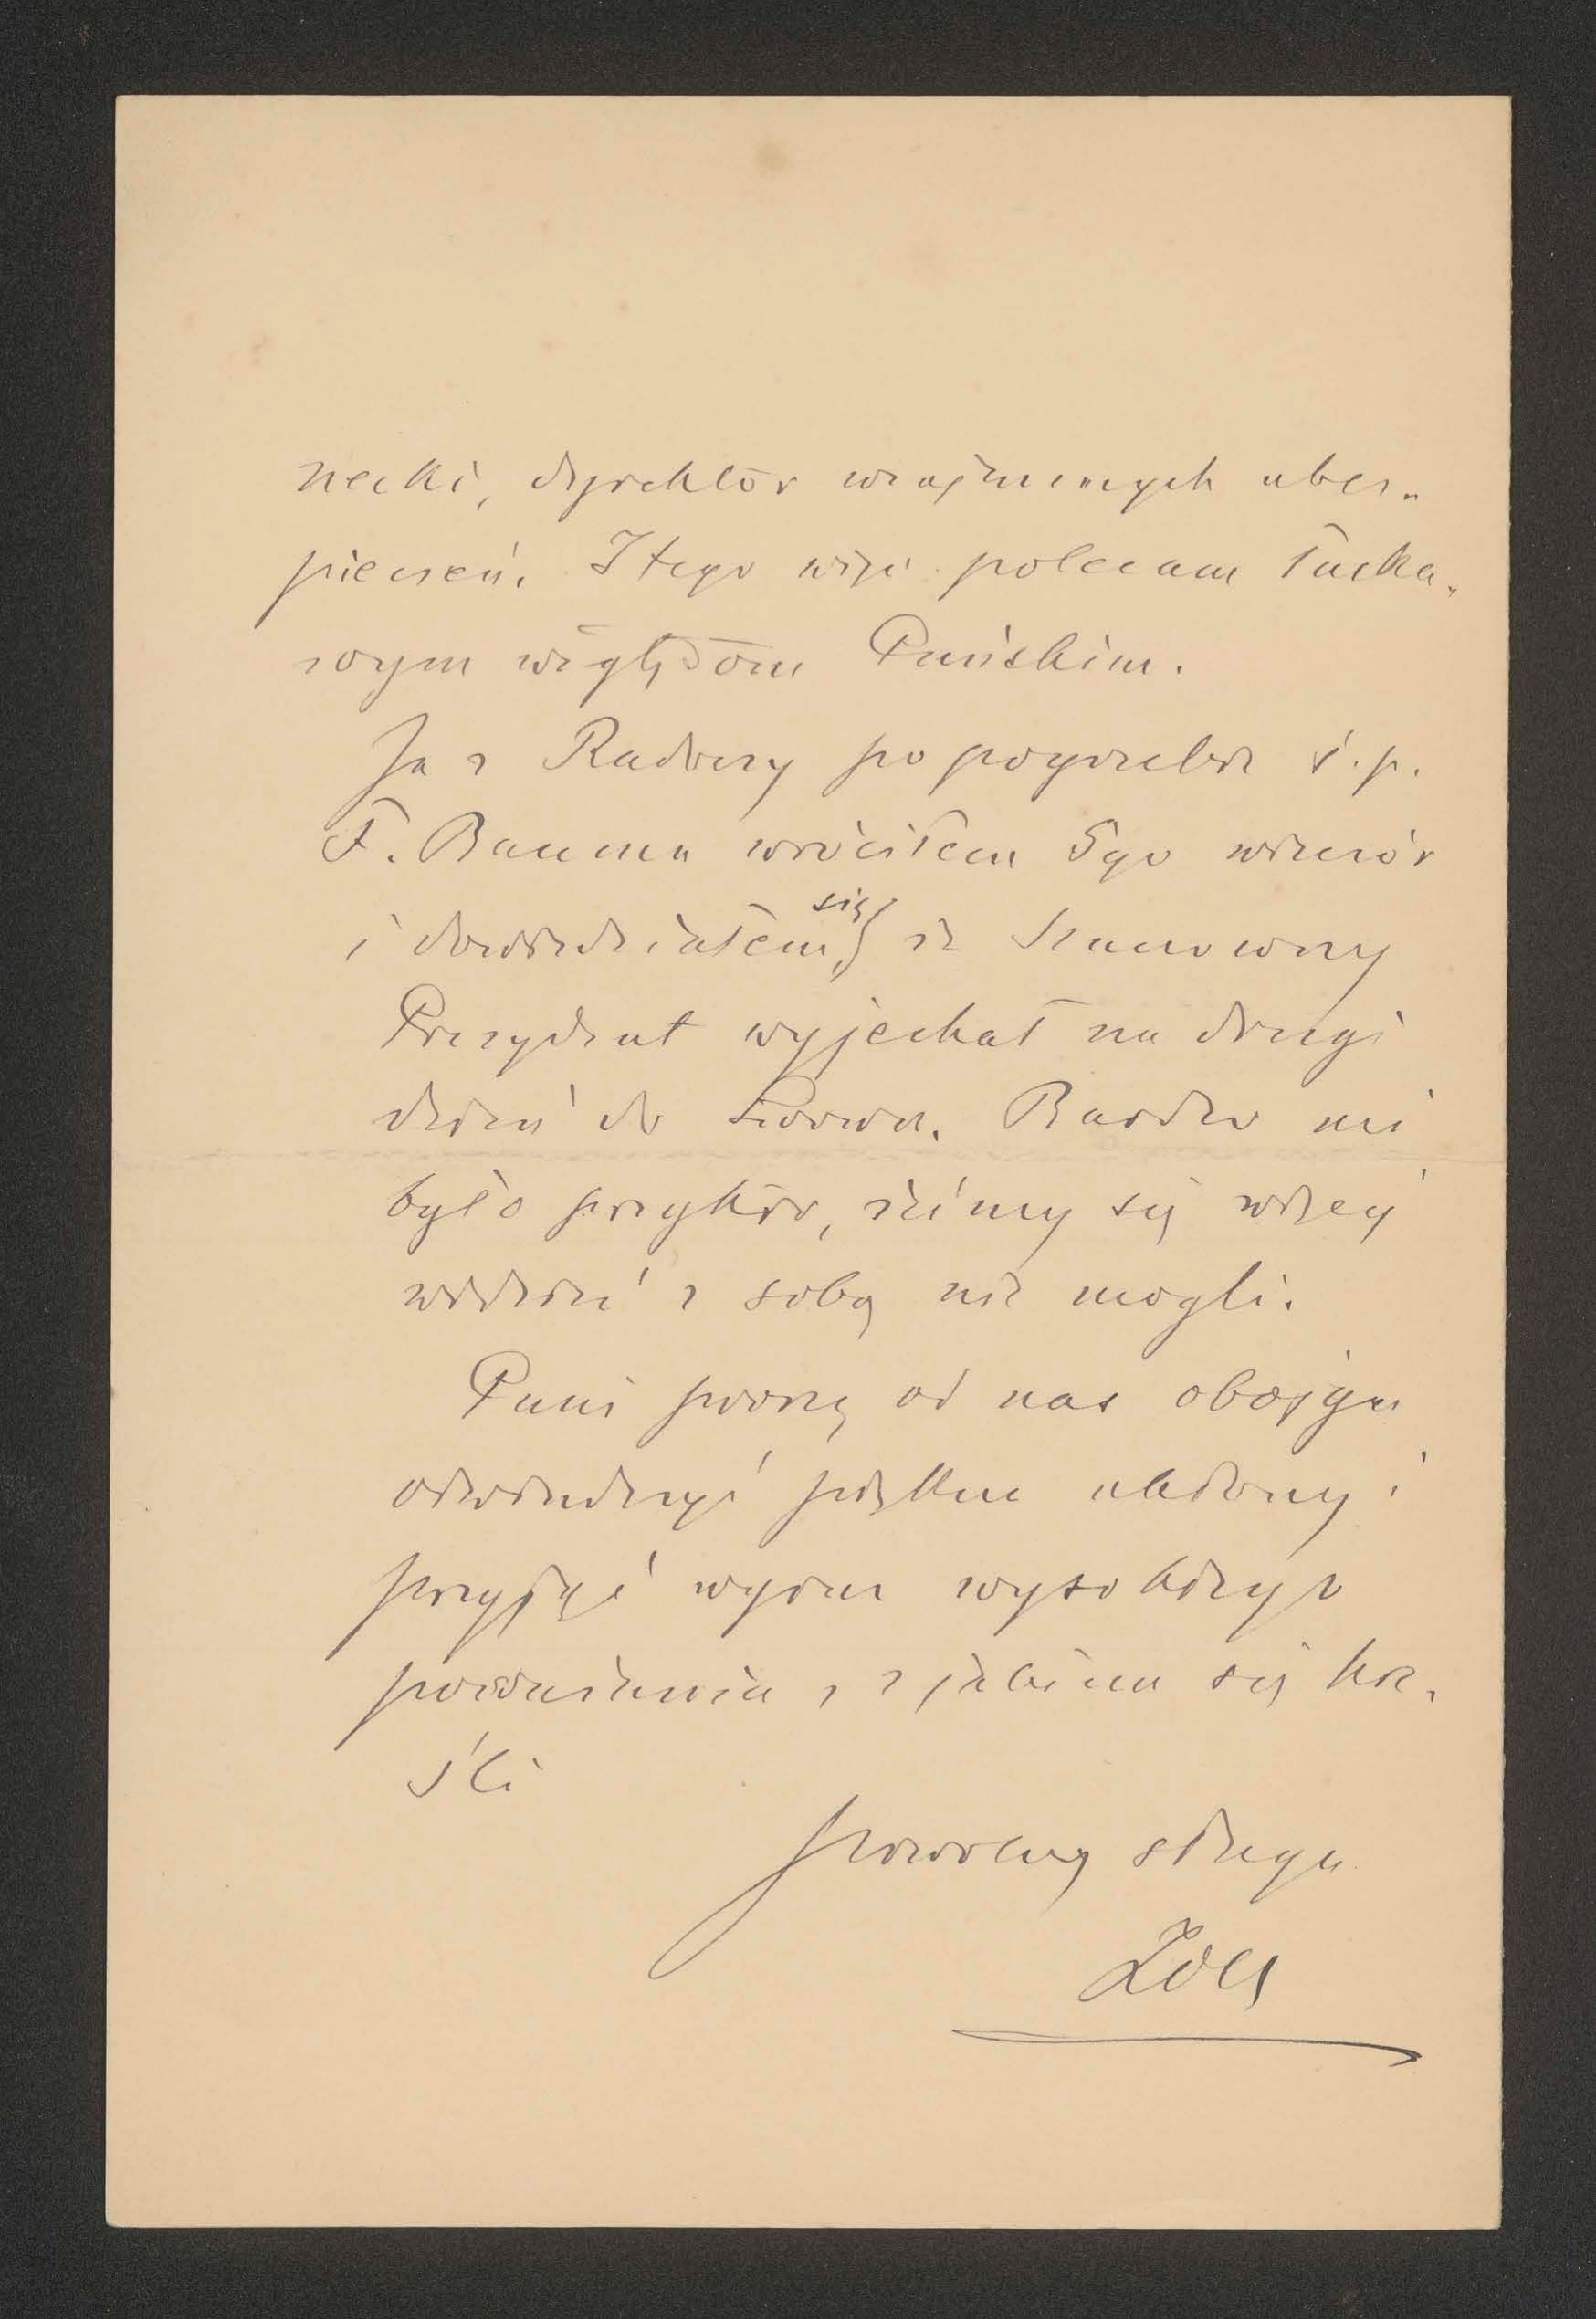 necki, dyrektor wzajemnych ubez-
pieczeń. I tego więc polecam łaska-
wym względom Pańskim.
Ja z Radoczy po pogrzebie ś.p.
F. Bauma wróciłem 5go wieczór
i dowiedziałem się, że Szanowny
Prezydent wyjechał na drugi
dzień do Lwowa. Bardzo mi
było przykro, żeśmy się więcej
widzieć z sobą nie mogli.
Pani proszę od nas obojga
oświadczyć piękne ukłony i
przyjąć wyraz wysokiego
poważania, z jakiem się kre-
śli
powolny sługa
Zoll